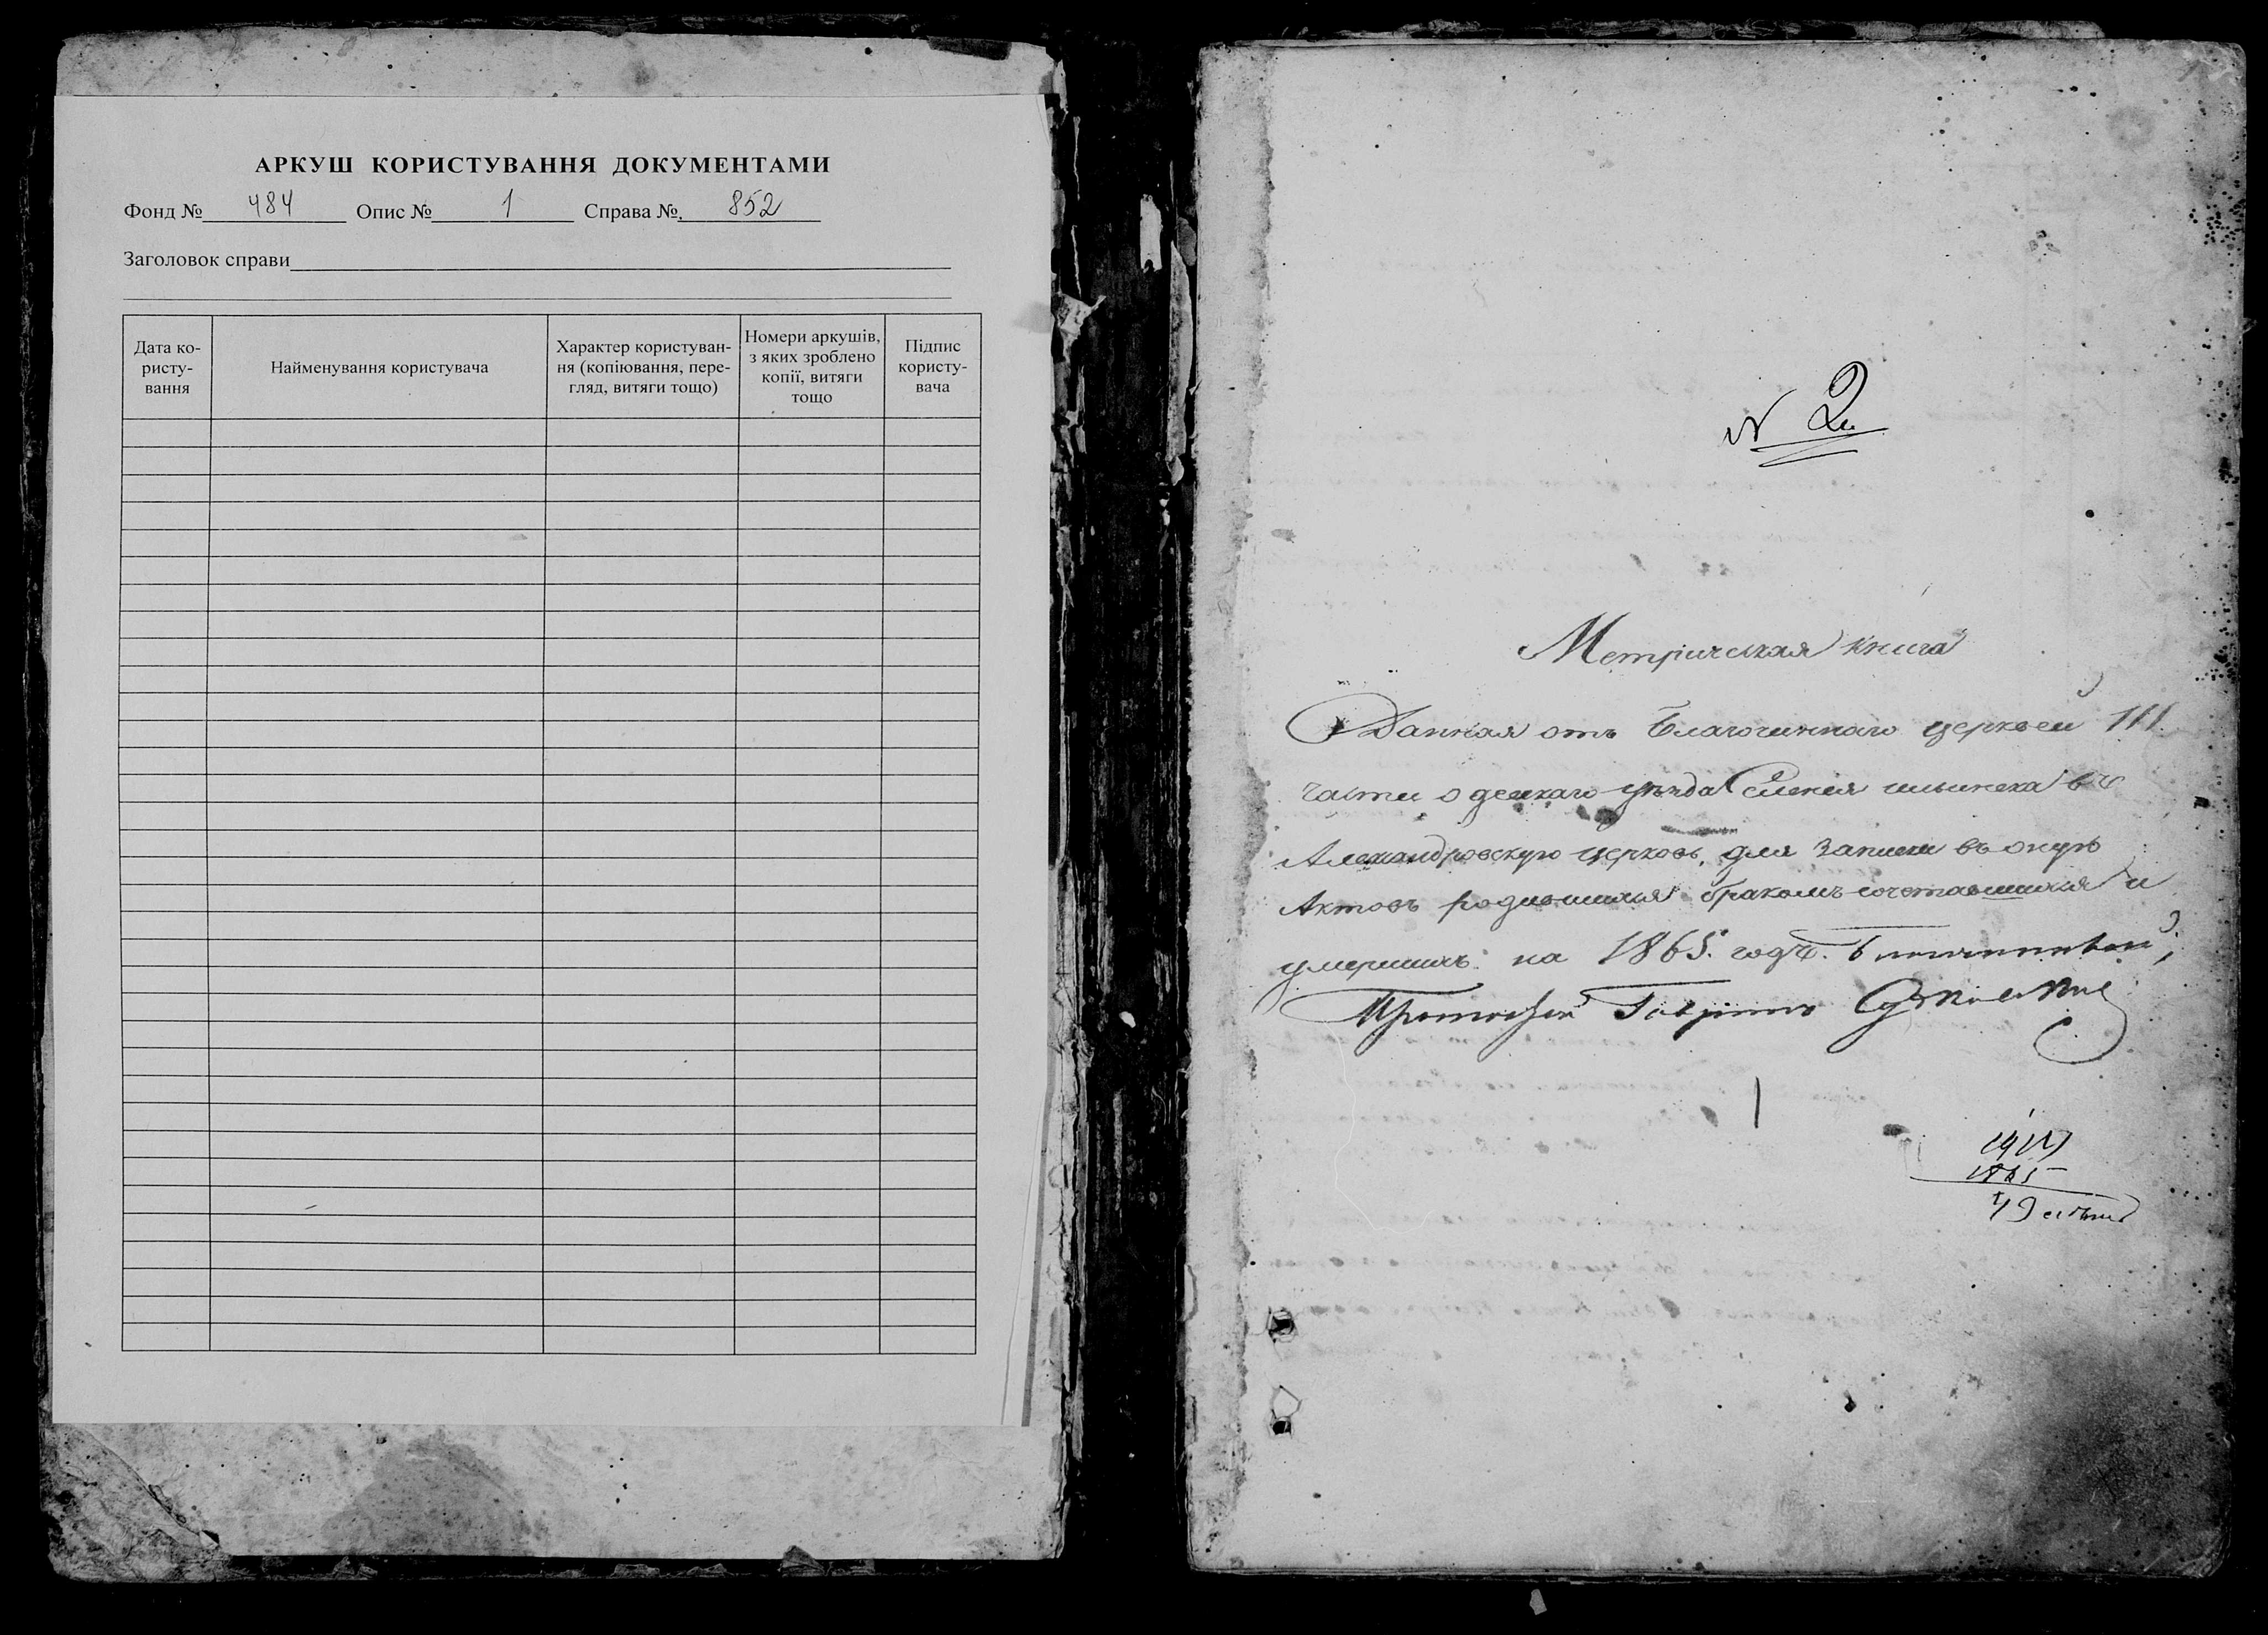 АРКУШ КОРИСТУВАННЯ ДОКУМЕНТАМИ
Фонд № 484 Опис № 1 Справа № 852
Заголовок справи
Дата ко-
ристу-
вання
Найменування користувача
Характер користуван-
ня (копіювання, пере-
гляд, витяги тощо)
Номери аркушів,
з яких зроблено
копії, витяги
тощо
Підпис
користу-
вача
N 2
Метрическая книга
Данная отъ Благочиннаго церквей III
части одескаго уѣзда Селенія ильинска въ
Александровскую церковь, для записки въ оную
Актовъ родившихся бракомъ сочетавшихся и
умершихъ на 1865. годъ.
Протоіерей
1
1865